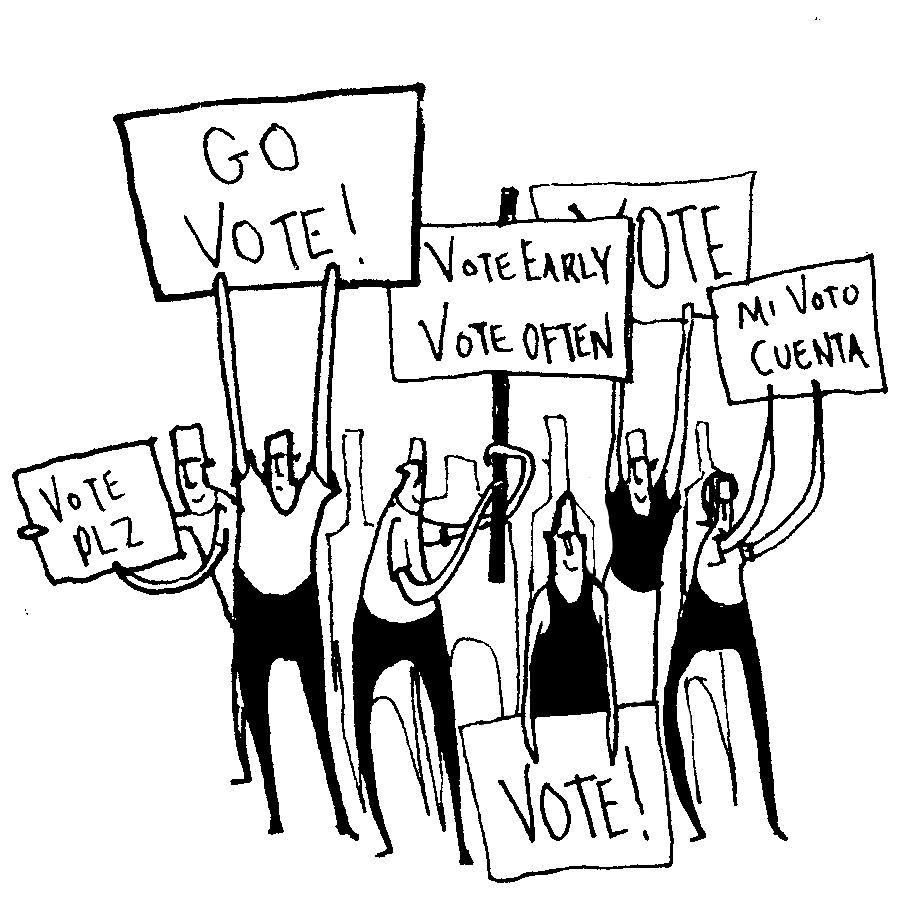 GO
VOTE!
VOTE EARLY
VOTE OFTEN
VOTE
MI VOTO
CUENTA
VOTE
PLZ
VOTE!